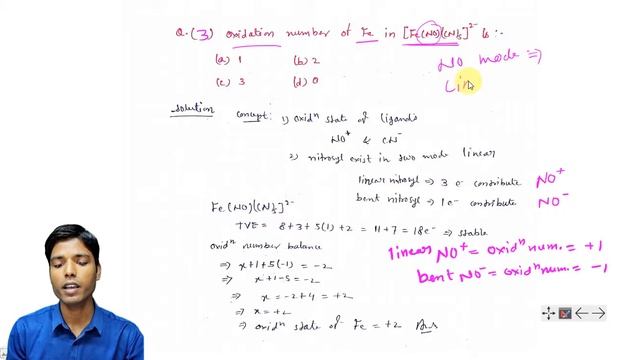 Q.(3) Oxidation number of Fe in [Fe(NO)(CN)5]2- is :-
(a) 1 (b) 2
(c) 3 (d) 0
NO mode ⇒
Lin
Solution Concept: 1) oxidn state of ligands
NO+ & CN-
2) nitrosyl exist in two mode linear
linear nitrosyl → 3 e- contribute NO+
bent nitrosyl → 1 e- contribute NO-
Fe(NO)(CN)5]2-
TVE = 8+3+5(1)+2 = 11+7 = 18e- ⇒ stable
oxidn number balance
⇒ x+1+5(-1) = -2
⇒ x+1-5 = -2
⇒ x = -2+4 = +2
⇒ x = +2
⇒ oxidn state of Fe = +2 Ans
linear NO+ = oxidn num. = +1
bent NO- = oxidn num. = -1